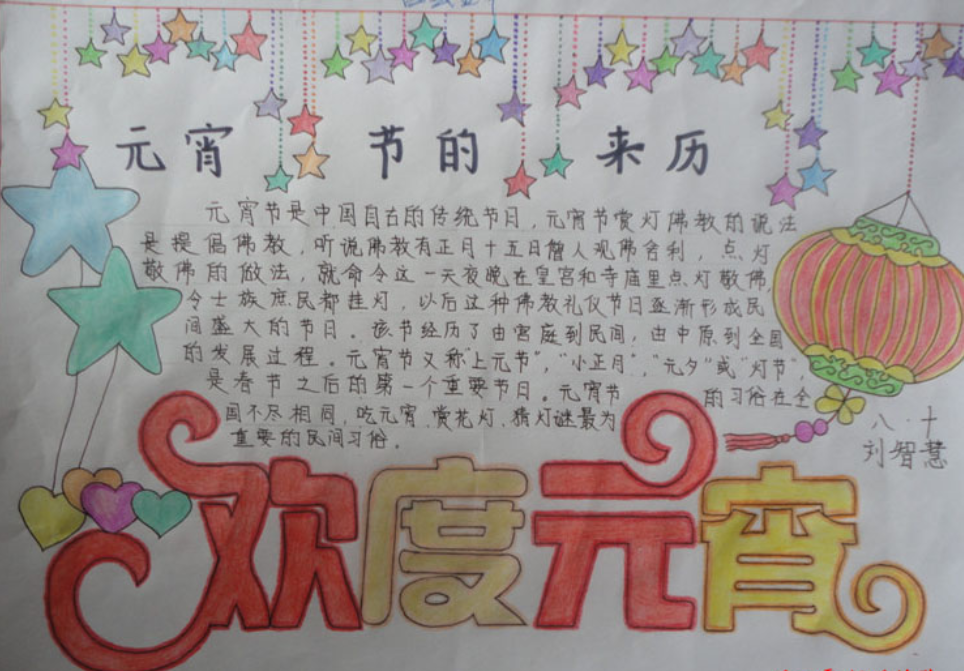 元宵节的来历
元宵节是中国自古的传统节日，元宵节赏灯佛教的说法
是提倡佛教，听说佛教有正月十五日僧人观佛舍利，点灯
敬佛的做法，就命令这一天夜晚在皇宫和寺庙里点灯敬佛，
令士族庶民都挂灯，以后这种佛教礼仪节日逐渐形成民
间盛大的节日。该节经历了由宫庭到民间，由中原到全国
的发展过程。元宵节又称上元节"，"小正月"，"元夕"或"灯节"，
是春节之后的第一个重要节日。元宵节的习俗在全
国不尽相同，吃元宵、赏花灯、猜灯谜最为
重要的民间习俗。
八·十
刘智慧
欢度元宵